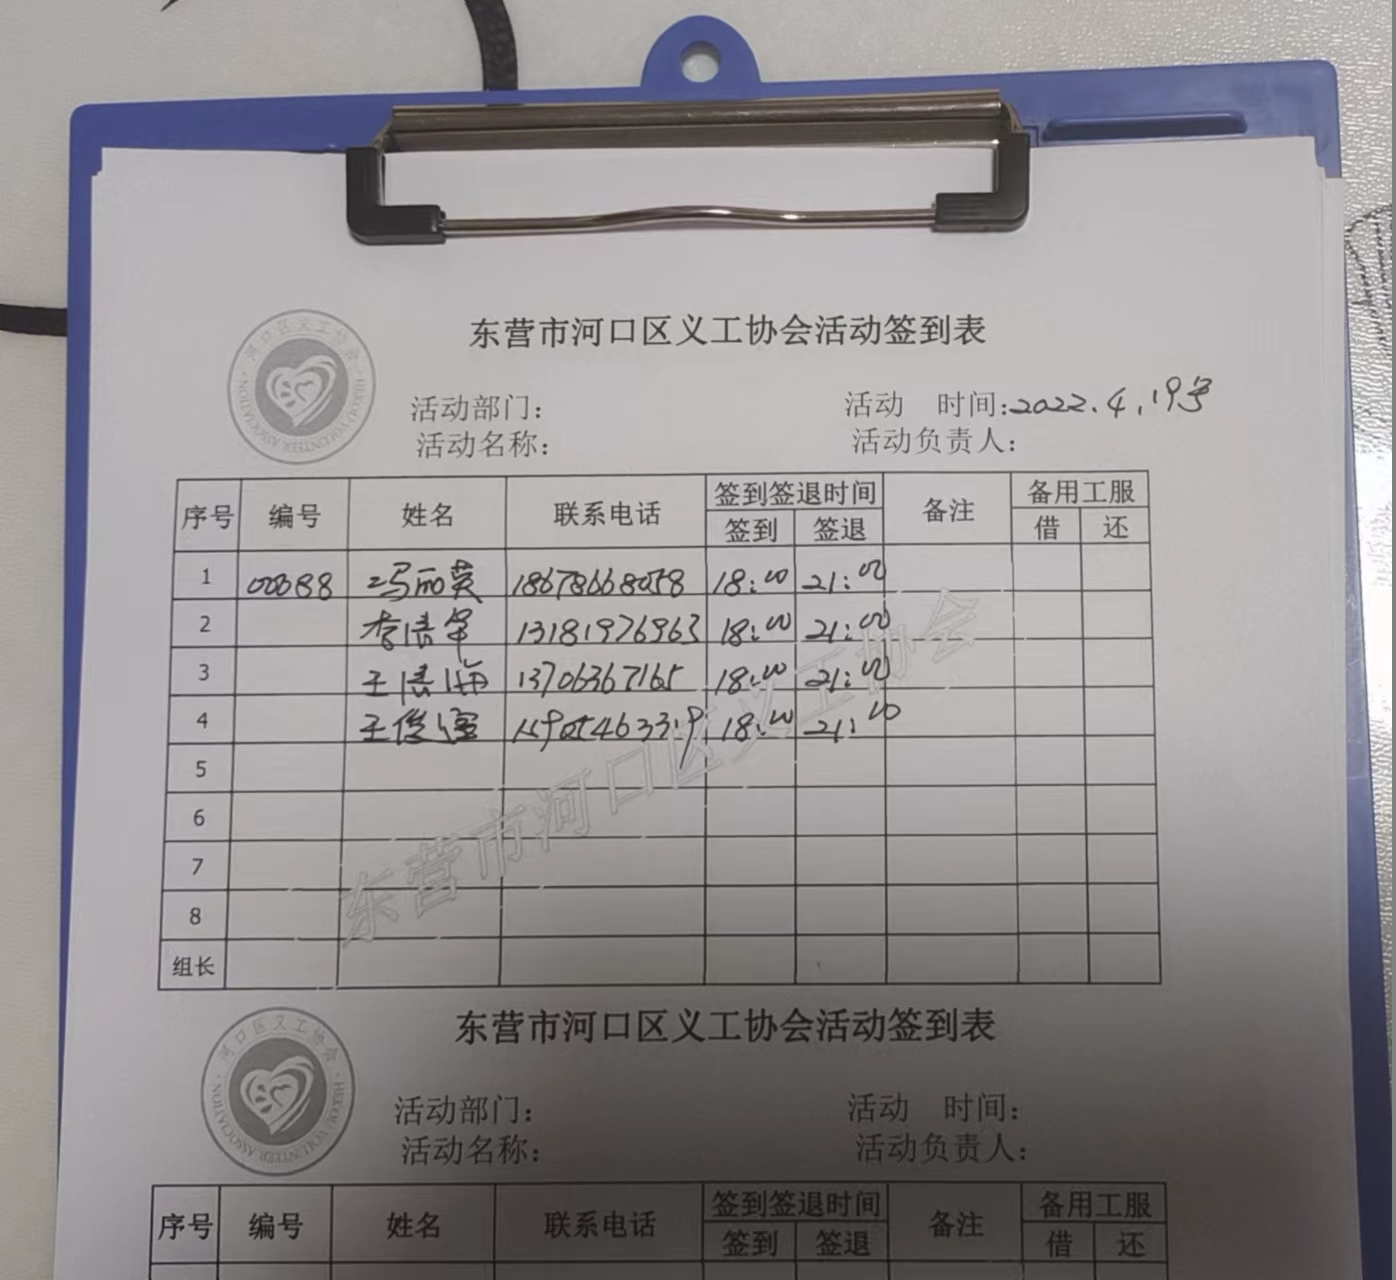 东营市河口区义工协会活动签到表
河口区义工协会
HEKOU VOLUNTEER ASSOCIATION
活动部门： 活动 时间：2022.4.19号
活动名称： 活动负责人：
序号 编号 姓名 联系电话 签到签退时间 备注 备用工服
签到 签退 借 还
1 00388 冯丽英 18678668058 18:00 21:00
2 李浩军 13181976963 18:00 21:00
3 王浩海 13706367165 18:00 21:00
4 王俊 18:00 21:00
5
6
7
8
组长
东营市河口区义工协会
东营市河口区义工协会活动签到表
河口区义工协会
HEKOU VOLUNTEER ASSOCIATION
活动部门： 活动 时间：
活动名称： 活动负责人：
序号 编号 姓名 联系电话 签到签退时间 备注 备用工服
签到 签退 借 还